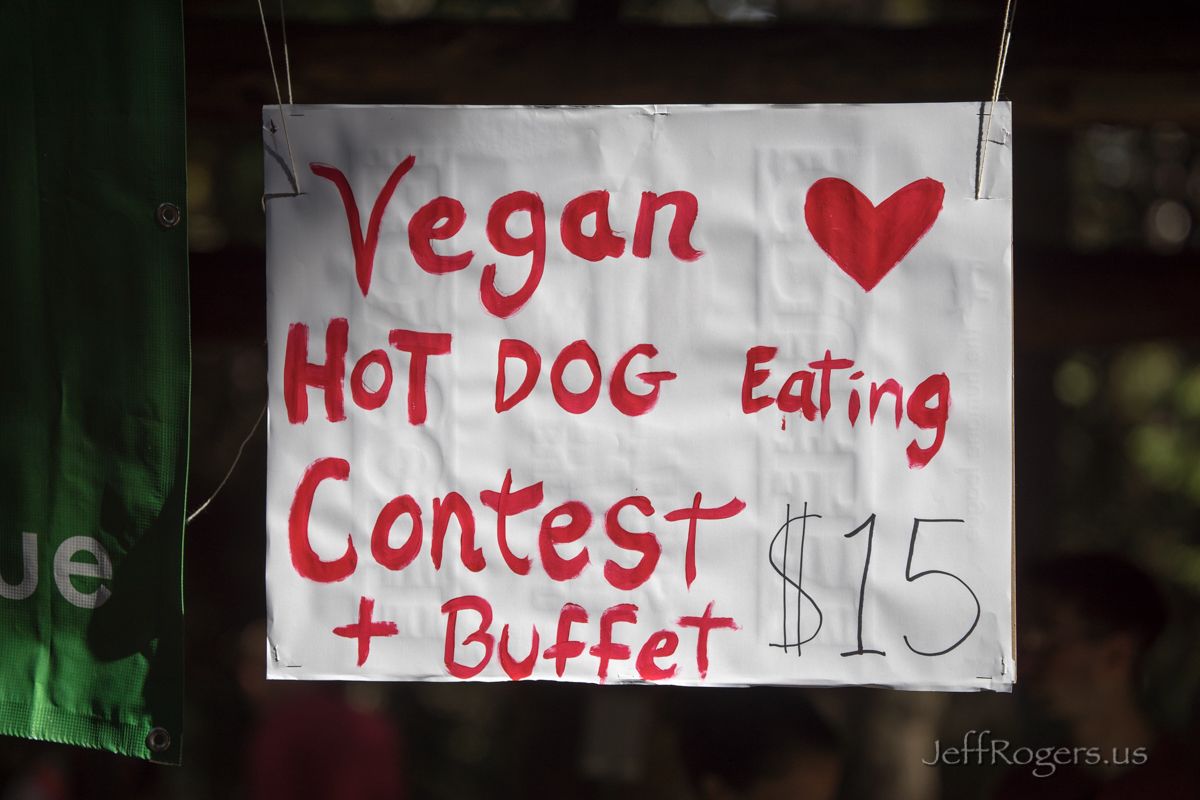 Vegan ♥
HOT DOG Eating
Contest $15
+ Buffet
ue
JeffRogers.us